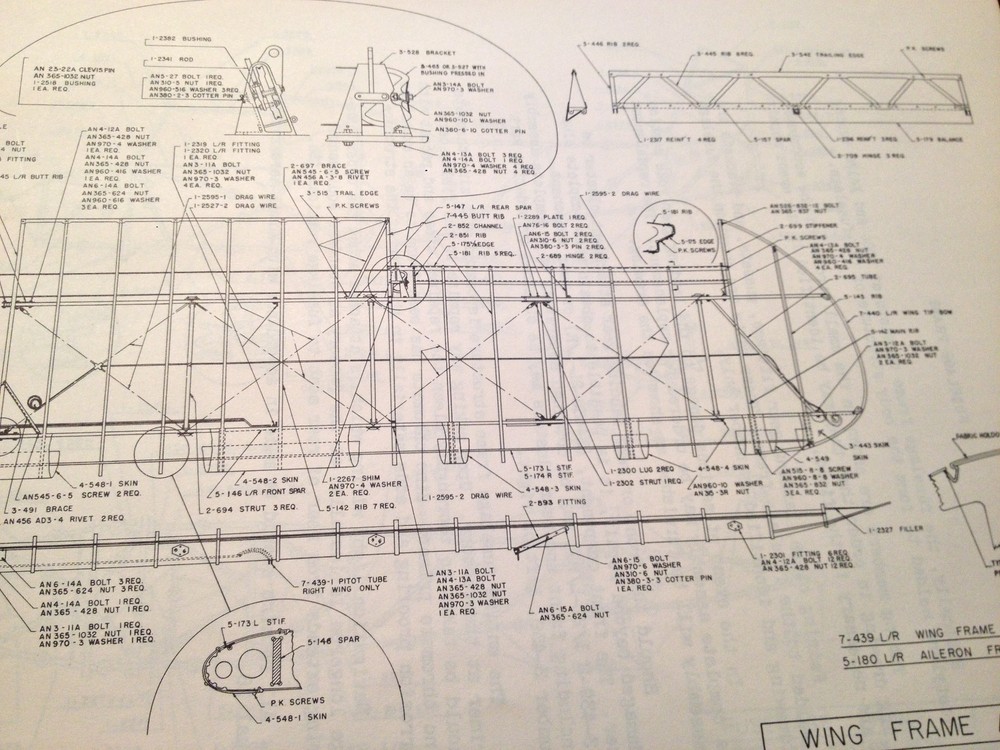 1-2382 BUSHING
1-2341 ROD
AN 23-22A CLEVIS PIN
AN 365-1032 NUT
1-2518 BUSHING
1 EA. REQ.
AN5-27 BOLT 1REQ.
AN310-5 NUT 1REQ.
AN960-516 WASHER 3REQ.
AN380-2-3 COTTER PIN
3-528 BRACKET
BUSHING PRESSED IN
AN3-14A BOLT
AN970-3 WASHER
AN365-1032 NUT
AN960-10L WASHER
AN380-6-10 COTTER PIN
AN4-13A BOLT 3 REQ.
AN4-14A BOLT 1 REQ.
AN970-4 WASHER 4 REQ.
AN365-428 NUT 4 REQ.
3-446 RIB 2REQ.
3-445 RIB 8REQ.
3-542 TRAILING EDGE
P.K. SCREWS
1-2317 REINF'T 4 REQ.
5-187 SPAR
1-2316 REINF'T 3REQ.
5-179 BALANCE
2-709 HINGE 3 REQ.
BOLT
NUT
FITTING
45 L/R BUTT RIB
AN4-12A BOLT
AN365-428 NUT
AN970-4 WASHER
1 EA. REQ.
AN4-14A BOLT
AN365-428 NUT
AN960-416 WASHER
1 EA. REQ.
AN6-14A BOLT
AN365-624 NUT
AN960-616 WASHER
3 EA. REQ.
1-2319 L/R FITTING
1-2320 L/R FITTING
1 EA. REQ.
AN3-11A BOLT
AN365-1032 NUT
AN970-3 WASHER
4 EA. REQ.
1-2595-1 DRAG WIRE
1-2527-2 DRAG WIRE
2-697 BRACE
AN545-6-5 SCREW
AN 456 A-3-8 RIVET
1 EA. REQ.
3-515 TRAIL EDGE
P.K. SCREWS
5-147 L/R REAR SPAR
7-445 BUTT RIB
2-852 CHANNEL
2-851 RIB
5-175½ EDGE
5-181 RIB 5 REQ.
1-2289 PLATE 1 REQ.
AN76-16 BOLT 2 REQ.
AN6-15 BOLT 2 REQ.
AN310-6 NUT 2 REQ.
AN380-3-3 PIN 2 REQ.
2-689 HINGE 2 REQ.
1-2595-2 DRAG WIRE
5-181 RIB
5-175 EDGE
P.K. SCREWS
AN365-832 NUT
2-699 STIFFENER
P.K. SCREWS
AN4-12A BOLT
AN365-428 NUT
AN970-4 WASHER
AN960-416 WASHER
4 EA. REQ.
2-695 TUBE
5-145 RIB
7-440 L/R WING TIP BOW
5-142 MAIN RIB
AN3-12A BOLT
AN970-3 WASHER
AN365-1032 NUT
2 EA. REQ.
3-443 SKIN
4-549 SKIN
AN515-8-8 SCREW
AN960-8-8 WASHER
AN365-832 NUT
3 EA. REQ.
FABRIC HOLD
4-548-1 SKIN
AN545-6-5 SCREW 2 REQ.
3-491 BRACE
AN456 AD3-4 RIVET 2 REQ.
4-548-2 SKIN
5-146 L/R FRONT SPAR
2-694 STRUT 3 REQ.
1-2267 SHIM
AN970-4 WASHER
2 EA. REQ.
5-142 RIB 7 REQ.
1-2595-2 DRAG WIRE
5-173 L STIF.
5-174 R STIF.
4-548-3 SKIN
2-693 FITTING
1-2300 LUG 2REQ.
1-2302 STRUT 1REQ.
4-548-4 SKIN
AN960-10 WASHER
1-2327 FILLER
1-2301 FITTING 6 REQ.
AN4-12A BOLT 12 REQ.
AN365-428 NUT 12 REQ.
AN6-14A BOLT 3 REQ.
AN365-624 NUT 3 REQ.
AN4-14A BOLT 1 REQ.
AN365-428 NUT 1 REQ.
AN3-11A BOLT 1 REQ.
AN365-1032 NUT 1 REQ.
AN970-3 WASHER 1 REQ.
7-439-1 PITOT TUBE
RIGHT WING ONLY
AN3-11A BOLT
AN4-13A BOLT
AN365-428 NUT
AN365-1032 NUT
AN970-3 WASHER
1 EA. REQ.
AN6-15 BOLT
AN970-6 WASHER
AN310-6 NUT
AN380-3-3 COTTER PIN
1 EA. REQ.
AN6-15A BOLT
AN365-624 NUT
5-173 L STIF.
5-146 SPAR
P.K. SCREWS
4-548-1 SKIN
7-439 L/R WING FRAME
5-180 L/R AILERON FR
WING FRAME